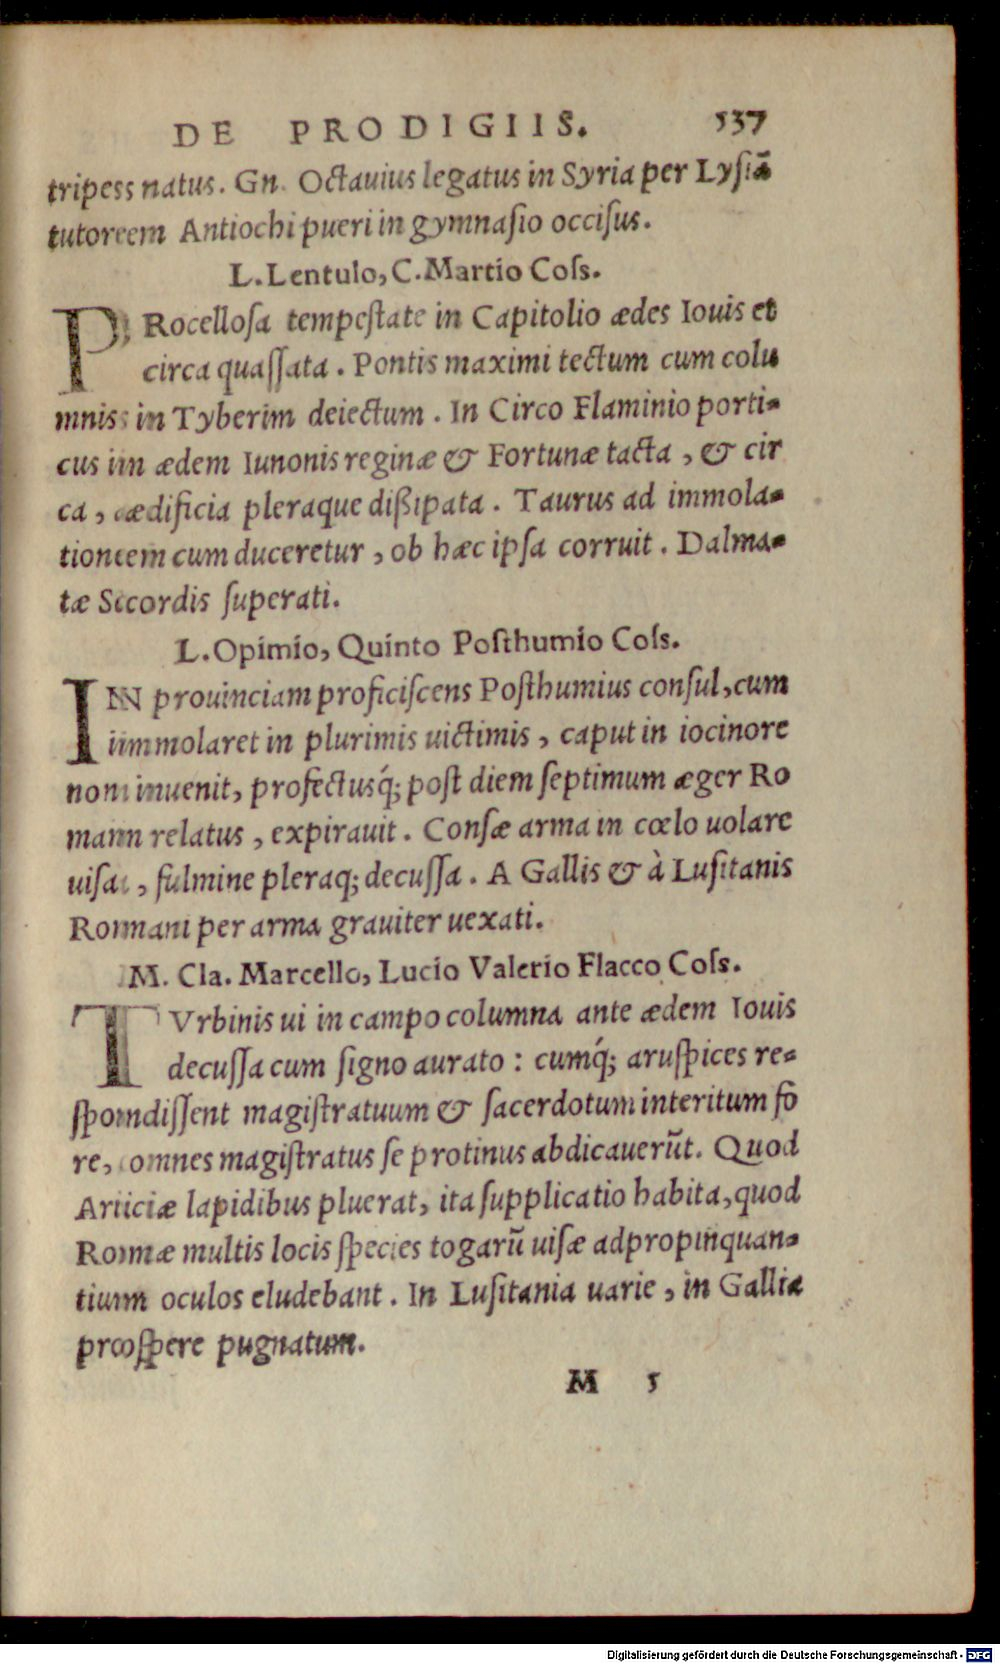 DE PRODIGIIS. 537
tripes natus. Gn. Octauius legatus in Syria per Lysiã
tutorem Antiochi pueri in gymnaſio occiſus.
L. Lentulo, C. Martio Coſs.
PRocelloſa tempeſtate in Capitolio ædes Iouis et
circa quaſſata. Pontis maximi tectum cum colu
mnis in Tyberim deiectum. In Circo Flaminio porti-
cus in ædem Iunonis reginæ & Fortunæ tacta, & cir
ca, ædificia pleraque dißipata. Taurus ad immola-
tionem cum duceretur, ob hæc ipſa corruit. Dalma-
tæ Scordis ſuperati.
L. Opimio, Quinto Poſthumio Coſs.
IN prouinciam proficiſcens Poſthumius conſul, cum
immolaret in plurimis uictimis, caput in iocinore
non inuenit, profectusq́; poſt diem ſeptimum æger Ro
mam relatus, expirauit. Conſæ arma in cœlo uolare
uiſa, fulmine pleraq; decuſſa. A Gallis & à Luſitanis
Romani per arma grauiter uexati.
M. Cla. Marcello, Lucio Valerio Flacco Coſs.
TVrbinis ui in campo columna ante ædem Iouis
decuſſa cum ſigno aurato: cumq́; aruſpices re-
ſpondiſſent magiſtratuum & ſacerdotum interitum fo
re, omnes magiſtratus ſe protinus abdicauerũt. Quod
Ariciæ lapidibus pluerat, ita ſupplicatio habita, quod
Romæ multis locis ſpecies togarũ uiſæ adpropinquan-
tium oculos eludebant. In Luſitania uarie, in Gallia
proſpere pugnatum.
M 5
Digitalisierung gefördert durch die Deutsche Forschungsgemeinschaft - DFG